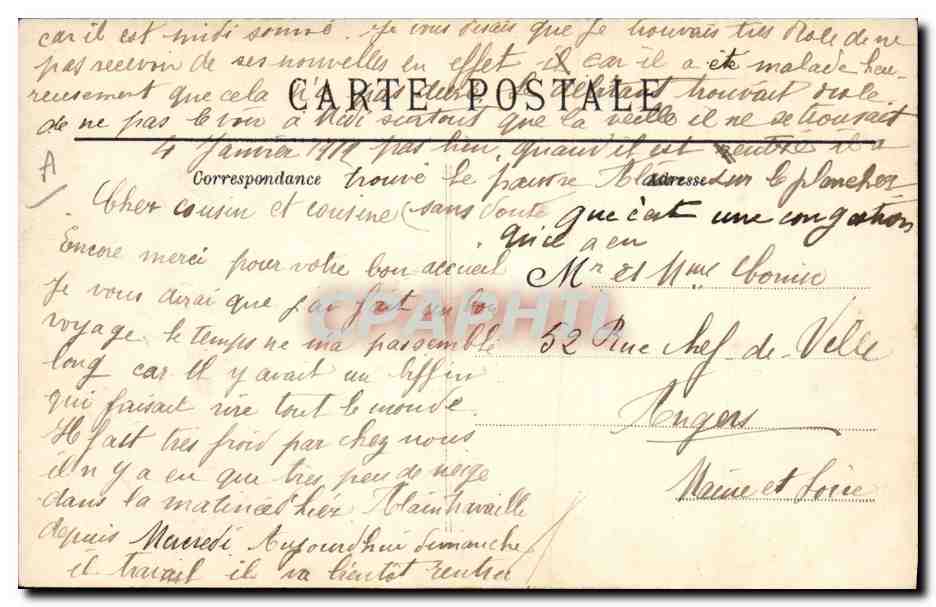 car il est midi sonné. Je vous disais que je trouvais très drole de ne
pas recevoir de ses nouvelles en effet il car il a été malade heu-
reusement que cela n'a pas duré le trouvait drole
CARTE POSTALE
de ne pas le voir à midi surtout que la veille il ne se trouvait
4 Janvier 1912 pas bien, quand il est rentré il a
Correspondance trouvé le pauvre Alain sur le plancher
Adresse
Cher cousin et cousine (sans doute que c'est une congestion
qu'il a eu
Encore merci pour votre bon accueil
Je vous dirai que j'ai fait un bon
voyage le temps ne ma pas semblé
long car il y avait un
qui faisait rire tout le monde.
Il fait très froid par chez nous
il n'y a eu que très peu de neige
dans la matinée d'hier Alain travaille
depuis Mercredi Aujourd'hui dimanche
il travail il va bientôt rentrer
Mr et Mme
52 Rue Chef-de-Ville
Angers
Maine et Loire
A
CPAPHIL